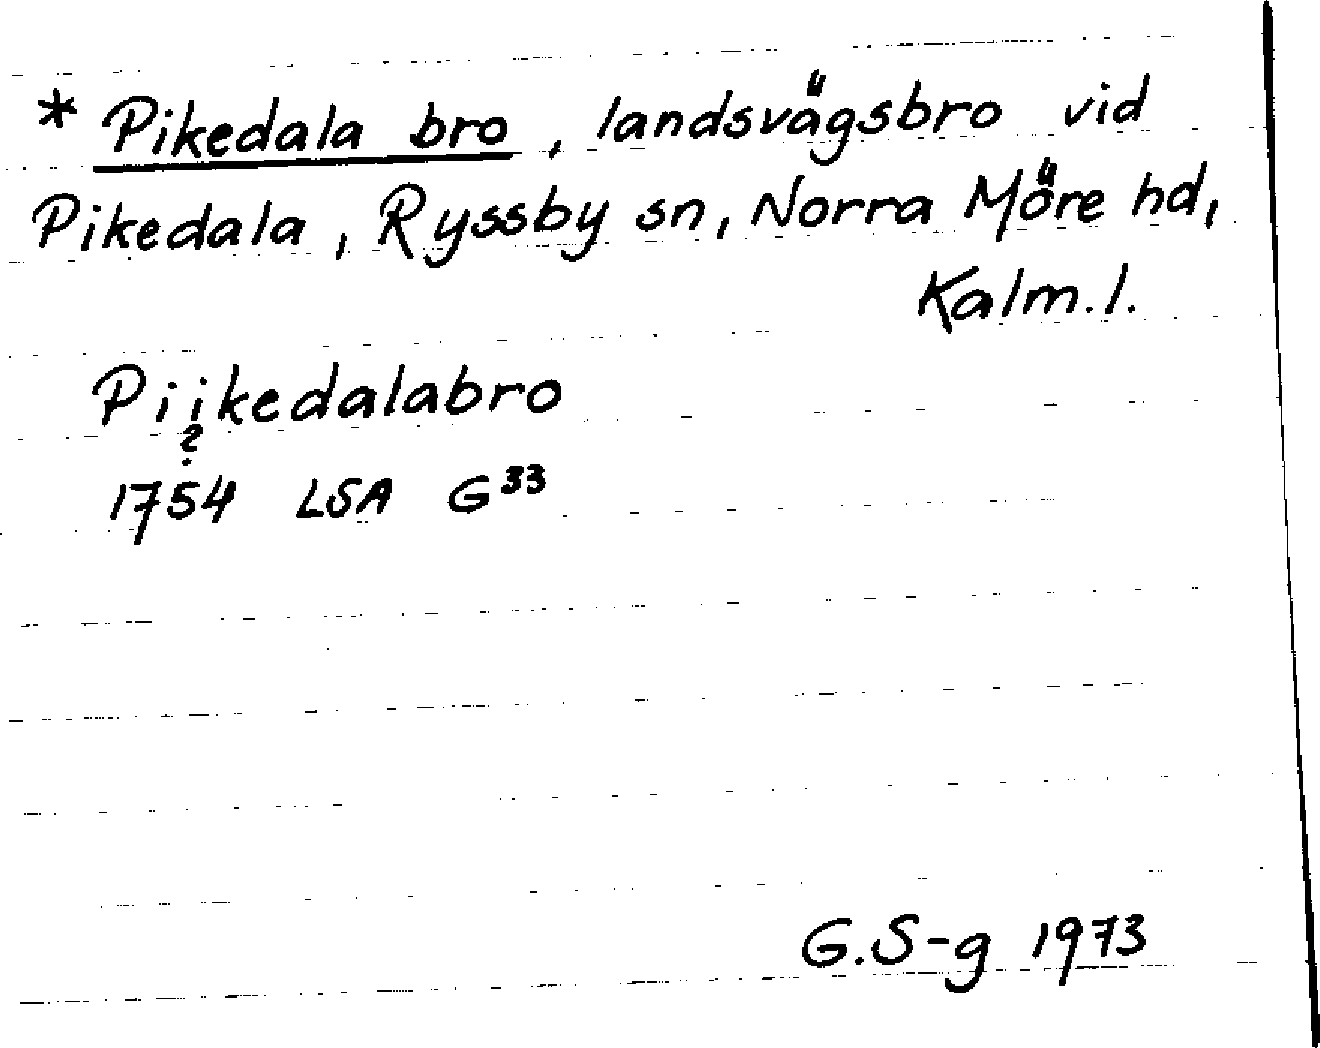 * Pikedala bro, landsvägsbro vid
Pikedala, Ryssby sn, Norra Möre hd,
Kalm.l.
Piikedalabro
?
1754 LSA G 33
G.S-g 1973